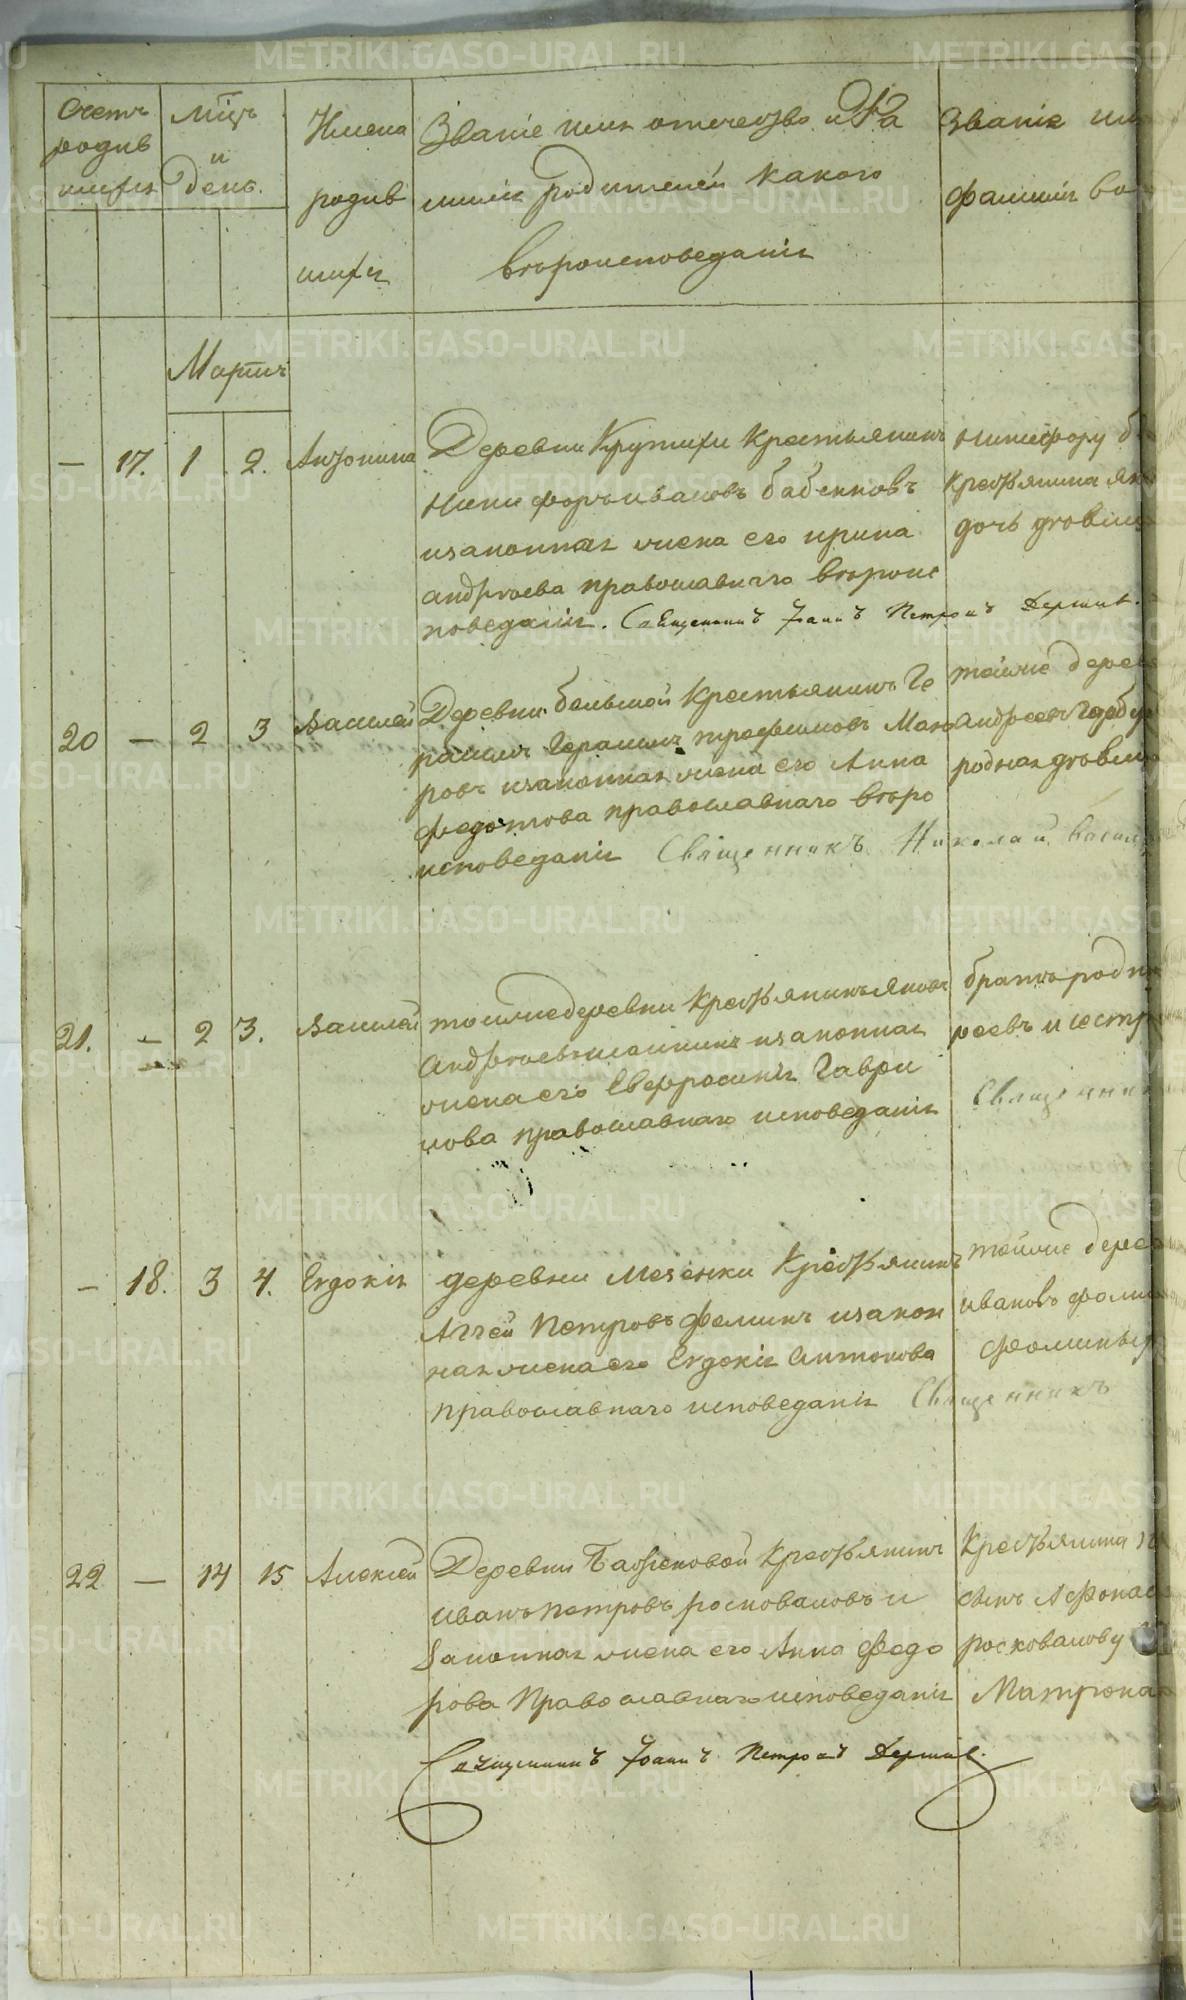 Счетъ
родив
шихся
Мцъ
и
день.
Имена
родив
шихся
Званіе имя отечество и Фа
милія родителей какого
вѣроисповеданія
Званіе им
фамилія во
Мартъ
— 17. 1 2. Антонина
Деревни Крутихи Крестьянинъ
Никифоръ ивановъ бабенковъ
изаконная жена его ирина
андрѣева православнаго вѣроис
поведанія. Священникъ Іоаннъ Петровъ
Никифору
Крестьянина
дочь дѣвица
20 — 2 3 Василей
Деревни большой Крестьянинъ Ге
расимъ Герасимъ трофимовъ Мака
ровъ изаконная жена его Анна
федотова православнаго вѣро
исповеданія Священникъ Николай Васил
тойже дерев
андреевъ
родная дѣвица
21. — 2 3. Василей
тойжедеревни Крестьянинъ Яковъ
андрѣевъ изаконная
женаего Евфросинія Гаври
лова православнаго исповеданія
братъ родн
реевъ и сестр
Священник
— 18. 3 4. Евдокія
деревни Мезенки Крестьянинъ
Петровъ фоминъ изакон
ная женаего Евдокія антонова
православнаго исповеданія Священникъ
тойже дерев
ивановъ фоми
Фоминых
22 — 14 15 Алексей
Деревни Крестьянинъ
иванъ петровъ росковаловъ и
Законная жена его Анна Федо
рова Православнаго исповеданія
Священникъ Іоаннъ Петровъ
Крестьянина
сынъ Афонас
росковалову
Матрена
METRIKI.GASO-URAL.RU